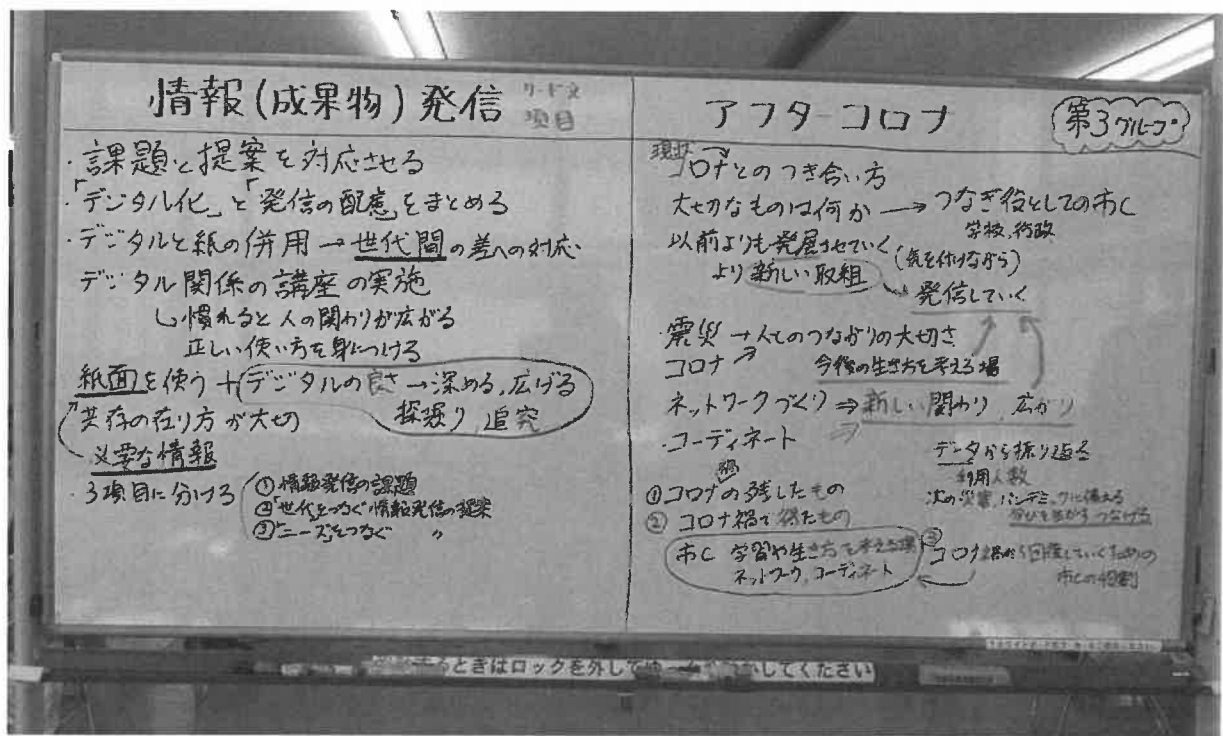 情報(成果物)発信
リード文
項目
・課題と提案を対応させる
・「デジタル化」と「発信の配慮」をまとめる
・デジタルと紙の併用→世代間の差への対応
デジタル関係の講座の実施
↳慣れると人の関わりが広がる
正しい使い方を身につける
紙面を使う+デジタルの良さ→深める,広げる
深堀り,追究
共存の在り方が大切
必要な情報
・3項目に分ける
①情報発信の課題
②「世代」をつなぐ情報発信の提案
③「ニーズ」をつなぐ 〃
アフターコロナ
第3グループ
現状
コロナとのつき合い方
大切なものは何か→つなぎ役としての市C
学校,行政
以前よりも発展させていく(気を付けながら)
より新しい取組
発信していく
・震災→人とのつながりの大切さ
コロナ
今後の生き方を考える場
ネットワークづくり⇒新しい関わり,広がり
・コーディネート
データから振り返る
利用人数
次の災害,パンデミックに備える
学びを生かす つなげる
禍
①コロナの残したもの
②コロナ禍で得たもの
市C 学習や生き方を考える場
ネットワーク,コーディネート
③
コロナ禍から回復していくための
市Cの役割
ときはロックを外して
してください